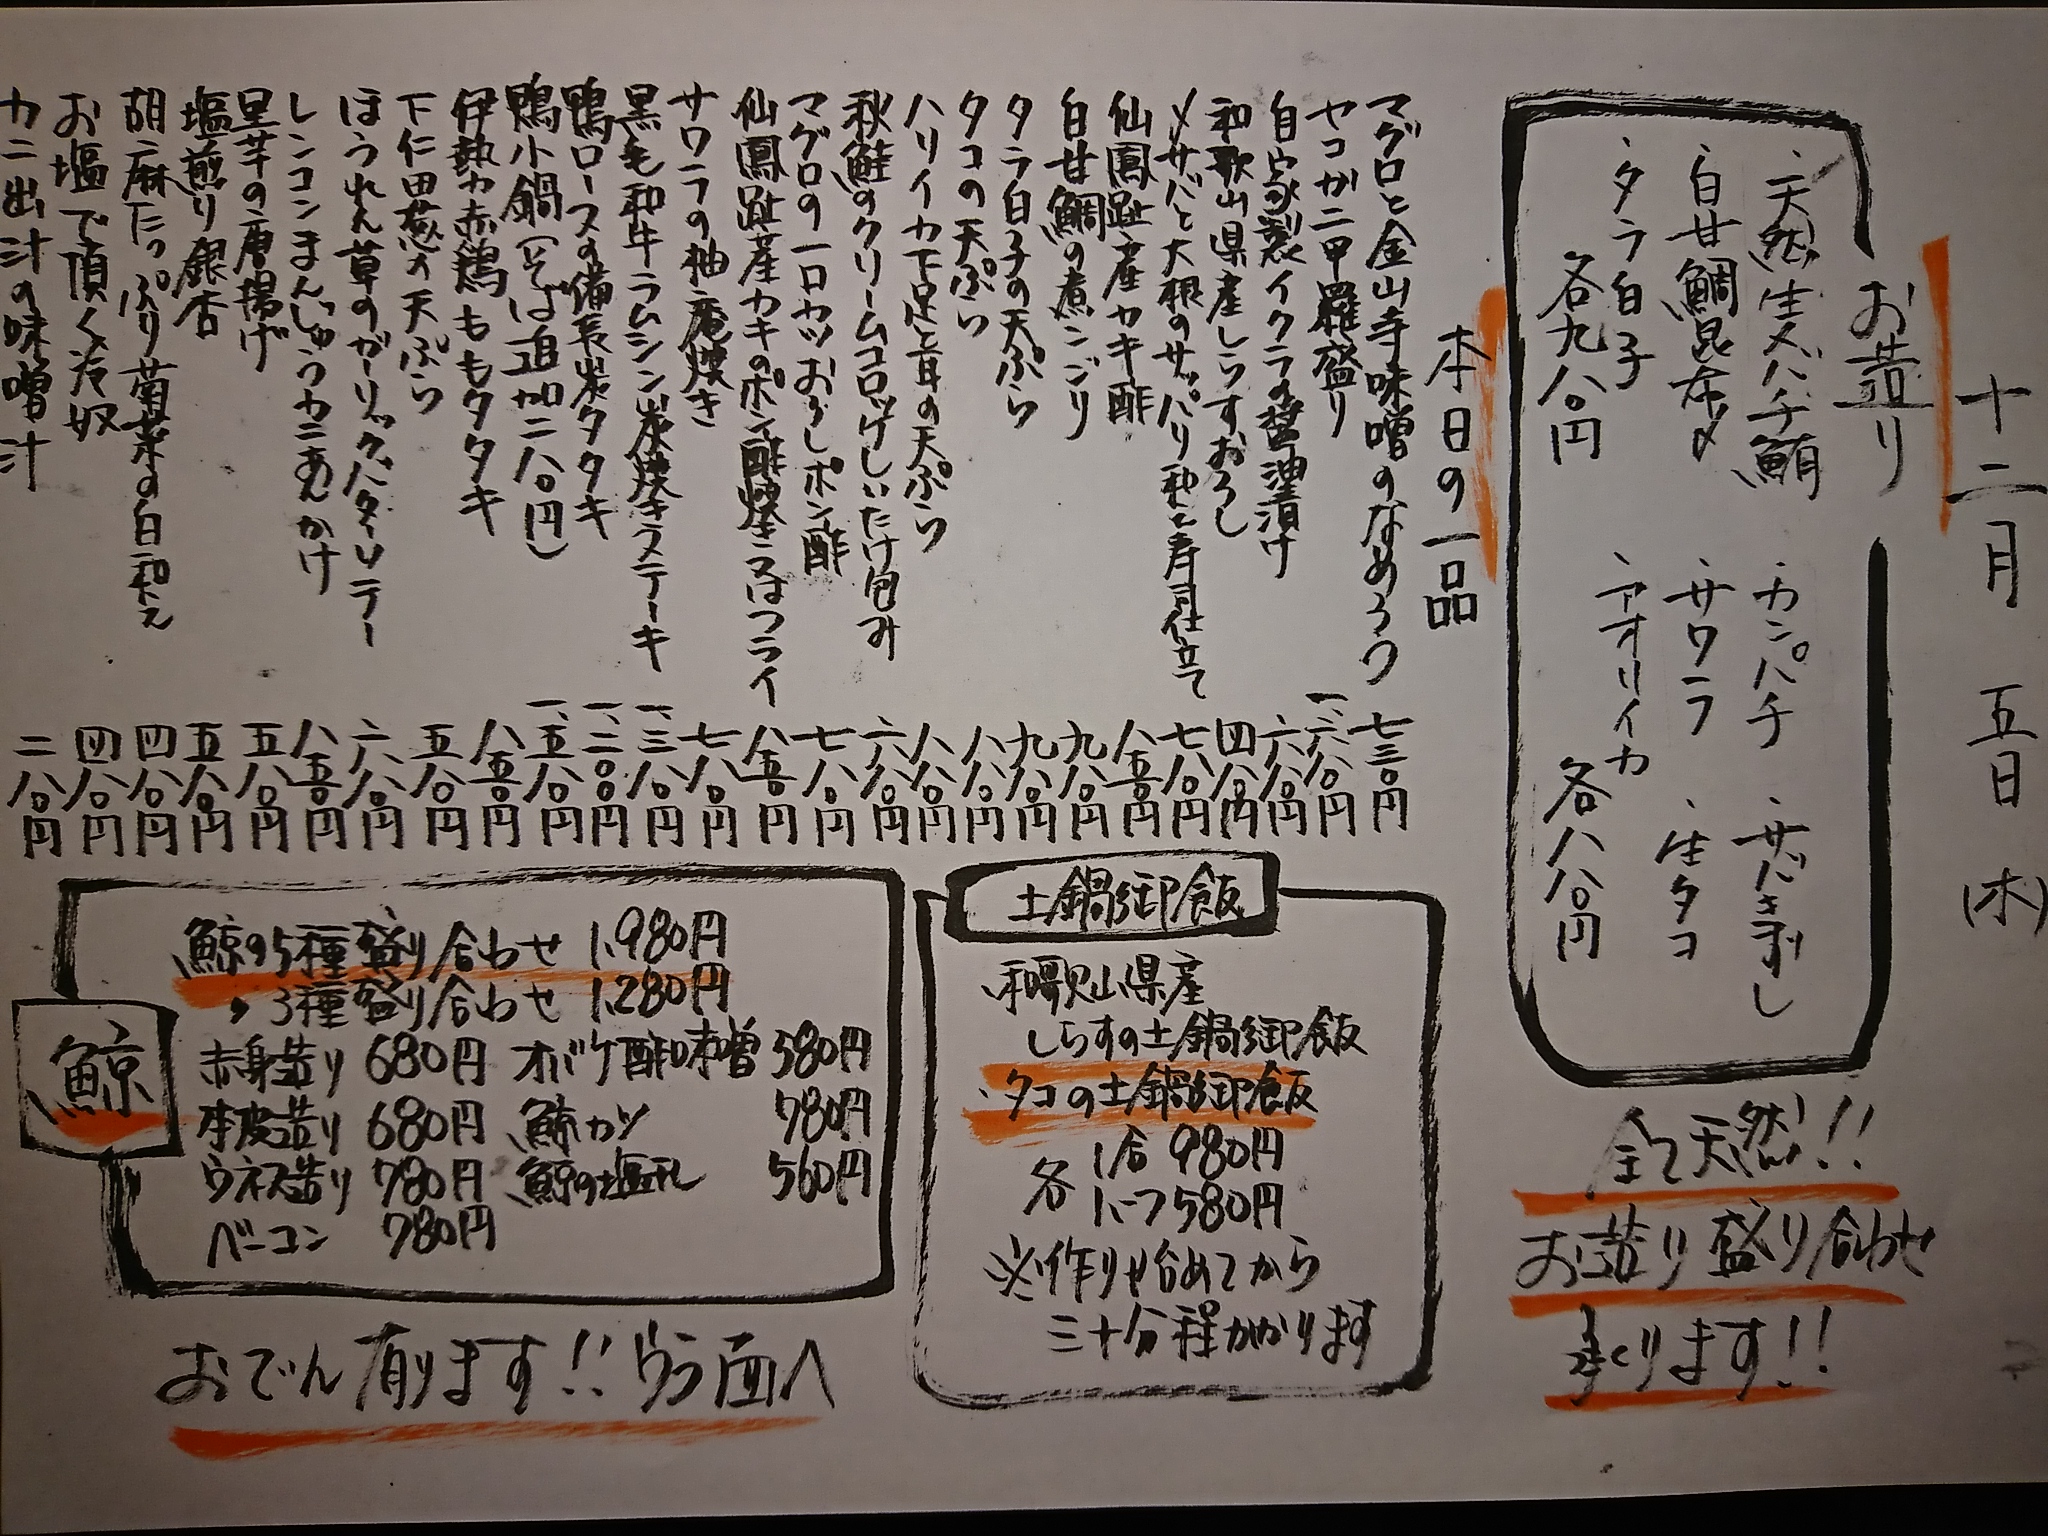 十二月 五日 (木)
お造り
・天然生メバチ鮪 ・カンパチ ・サバきずし
・白甘鯛昆布〆 ・サワラ ・生タコ
・タラ白子 ・アオリイカ
各九八〇円 各八八〇円
全て天然!!
お造り盛り合わせ
承ります!!
本日の一品
マグロと金山寺味噌のなめろう 七三〇円
セコガニ甲羅盛り 一、六八〇円
自家製イクラの醤油漬け 六八〇円
和歌山県産しらすおろし 四八〇円
〆サバと大根のサッパリ和え寿司仕立て 七八〇円
仙鳳趾産カキ酢 八五〇円
白甘鯛の煮こごり 九八〇円
タラ白子の天ぷら 九八〇円
タコの天ぷら 八八〇円
ハリイカ下足と耳の天ぷら 八八〇円
秋鮭のクリームコロッケしいたけ包み 六八〇円
マグロの一口カツおろしポン酢 七八〇円
仙鳳趾産カキのポン酢焼き又はフライ 八五〇円
サワラの柚庵焼き 七八〇円
黒毛和牛ラムシン炭焼きステーキ 一、三八〇円
鴨ロースの備長炭タタキ 一、二〇〇円
鴨小鍋(そば追加二八〇円) 一、五八〇円
伊勢赤鶏ももタタキ 八五〇円
下仁田葱の天ぷら 五八〇円
ほうれん草のガーリックバターソテー 六八〇円
レンコンまんじゅうカニあんかけ 八五〇円
里芋の唐揚げ 五八〇円
塩煎り銀杏 五八〇円
胡麻たっぷり菊菜の白和え 四八〇円
お塩で頂く冷奴 四八〇円
カニ出汁の味噌汁 二八〇円
土鍋御飯
・和歌山県産
しらすの土鍋御飯
・タコの土鍋御飯
各 1合 980円
1ハーフ 580円
※作り始めてから
三十分程かかります
鯨
鯨の5種盛り合わせ 1,980円
〃 3種盛り合わせ 1,280円
赤身造り 680円 オバケ酢味噌 580円
本皮造り 680円 鯨カツ 780円
ウネス造り 780円 鯨の塩干し 560円
ベーコン 780円
おでん有ります!! ウラ面へ